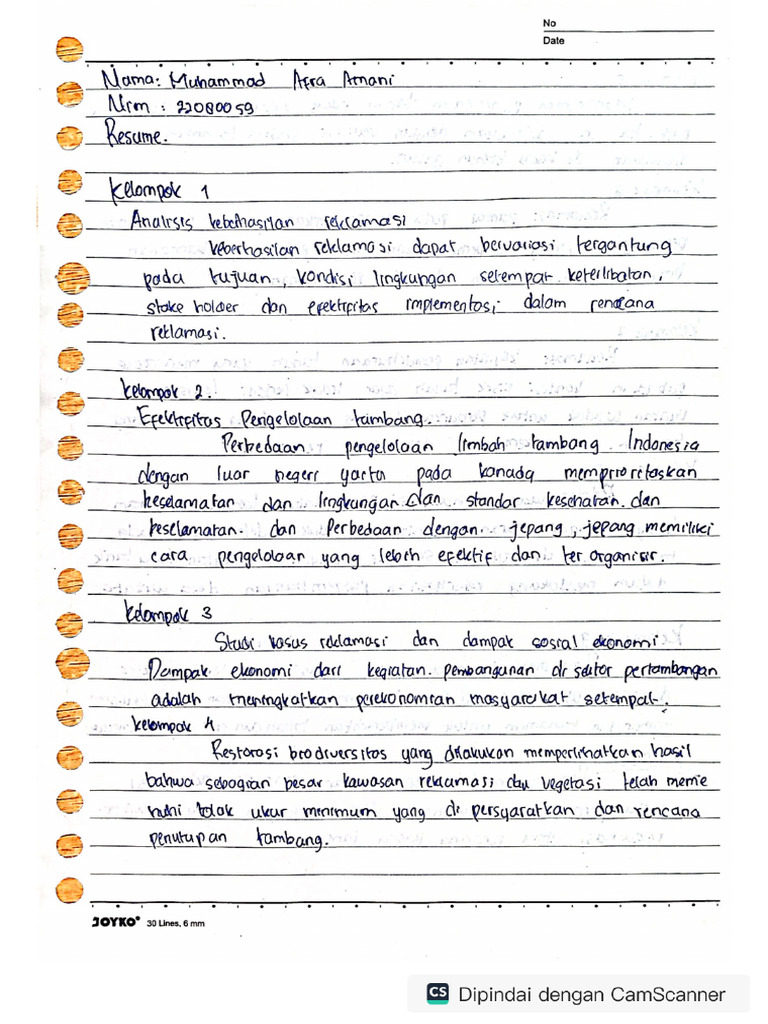 No
Date
Nama: Muhammad Afra Amani
Nim : 22080059
Resume.
Kelompok 1
Analisis keberhasilan reklamasi
keberhasilan reklamasi dapat bervariasi tergantung
pada tujuan, kondisi lingkungan setempat keterlibatan,
stake holder dan efektifitas implementasi, dalam rencana
reklamasi.
kelompok 2.
Efektifitas Pengelolaan tambang.
Perbedaan pengelolaan limbah tambang Indonesia
dengan luar negeri yaitu pada kanada memprioritaskan
keselamatan dan lingkungan dan standar kesehatan dan
keselamatan. dan Perbedaan dengan jepang, jepang memiliki
cara pengelolaan yang lebih efektif dan ter organisir.
kelompok 3
Studi kasus reklamasi dan dampak sosial ekonomi
Dampak ekonomi dari kegiatan pembangunan di sektor pertambangan
adalah meningkatkan perekonomian masyarakat setempat.
kelompok 4
Restorasi biodiversitas yang dilakukan memperlihatkan hasil
bahwa sebagian besar kawasan reklamasi dan vegetasi telah meme
nuhi tolak ukur minimum yang di persyaratkan dan rencana
penutupan tambang.
JOYKO 30 Lines, 6 mm
CS Dipindai dengan CamScanner